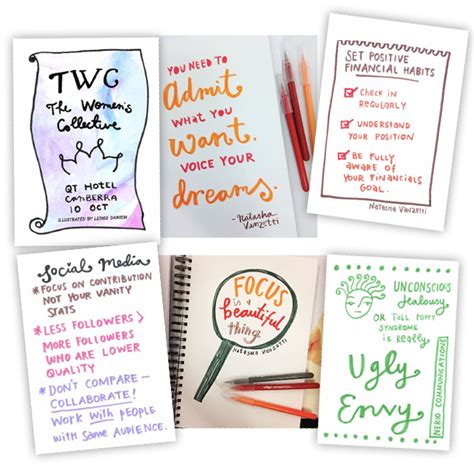 TWC
The Women's
Collective
QT HOTEL
CANBERRA
10 OCT
ILLUSTRATED BY LEISHE DAWSON
YOU NEED TO
Admit
WHAT YOU
Want.
VOICE YOUR
dreams.
-Natasha
Vanzetti
SET POSITIVE
FINANCIAL HABITS
CHECK IN
REGULARLY
UNDERSTAND
YOUR POSITION
BE FULLY
AWARE OF
YOUR FINANCIALS
GOAL.
NATASHA VANZETTI
Social Media
*FOCUS ON CONTRIBUTION
NOT YOUR VANITY
STATS
*LESS FOLLOWERS>
MORE FOLLOWERS
WHO ARE LOWER
QUALITY
*DON'T COMPARE—
COLLABORATE!
WORK WITH PEOPLE
WITH SAME AUDIENCE.
FOCUS
is a
beautiful
thing
NATASHA VANZETTI
UNCONSCIOUS
Jealousy
OR TALL POPPY
SYNDROME
is really
Ugly
Envy
NERIO COMMUNICATIONS